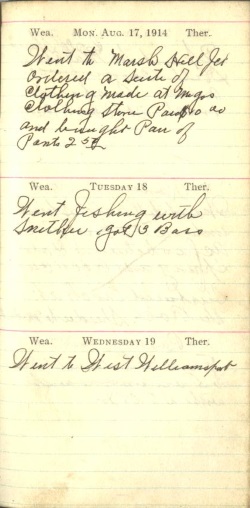 Wea. MON. AUG. 17, 1914 Ther.
Went to Marsh Hill Jct
ordered a Suite of
Clothing made at
Clothing Store Paid
and brought Pair of
Pants 2
Wea. TUESDAY 18 Ther.
Went Fishing with
got 3 Bass
Wea. WEDNESDAY 19 Ther.
Went to West Williamsport